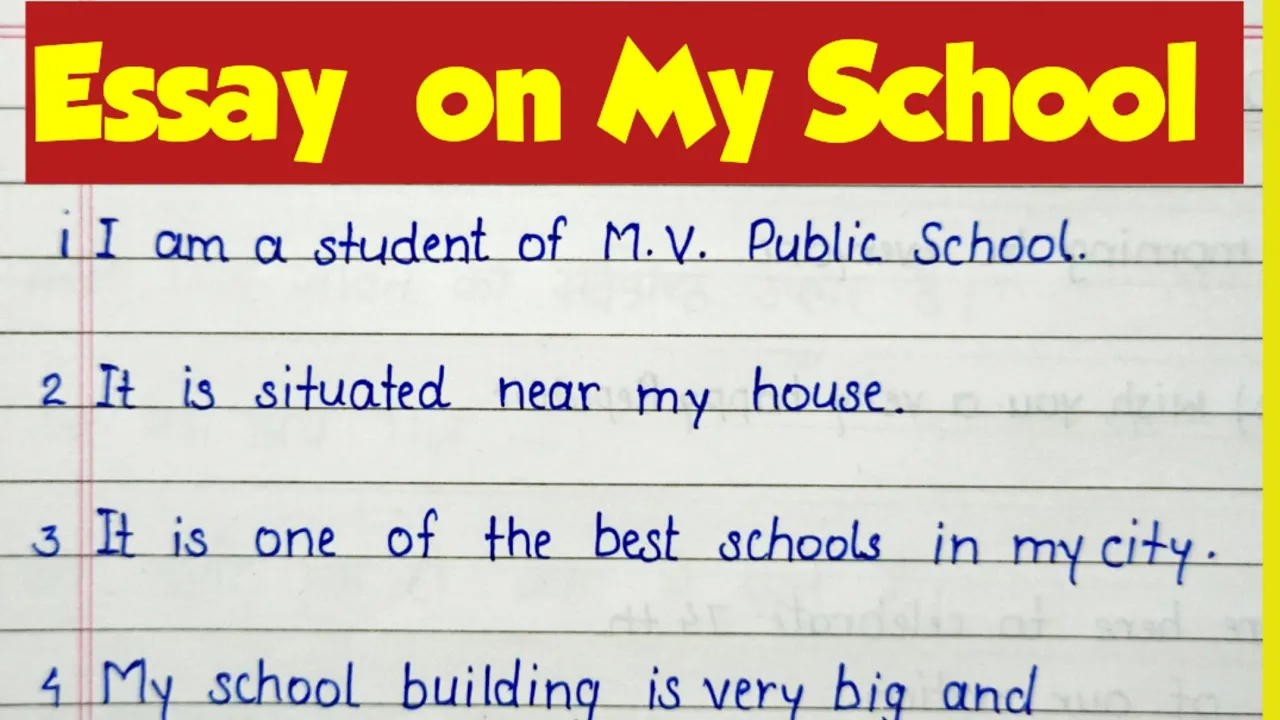 Essay on My School
i I am a student of M.V. Public School.
2 It is situated near my house.
3 It is one of the best schools in my city.
4 My school building is very big and